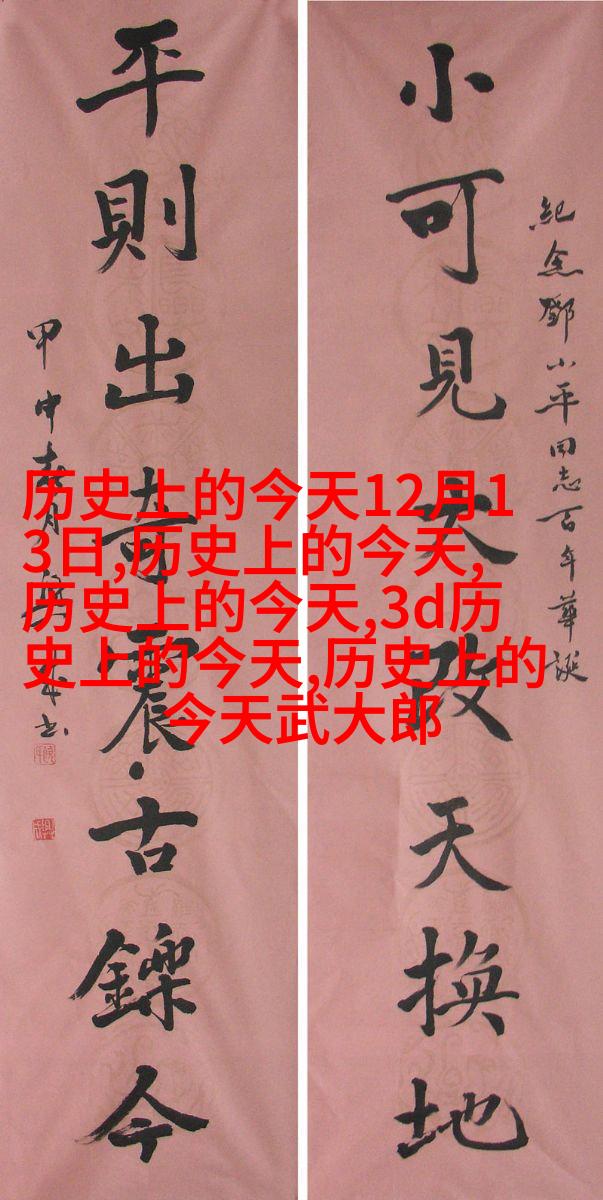 紀念鄧小平同志百年華誕
小可見大改天換地
平則出奇震古鑠今
甲申春月
历史上的今天12月1
3日,历史上的今天,
历史上的今天,3d历
史上的今天,历史上的
今天武大郎